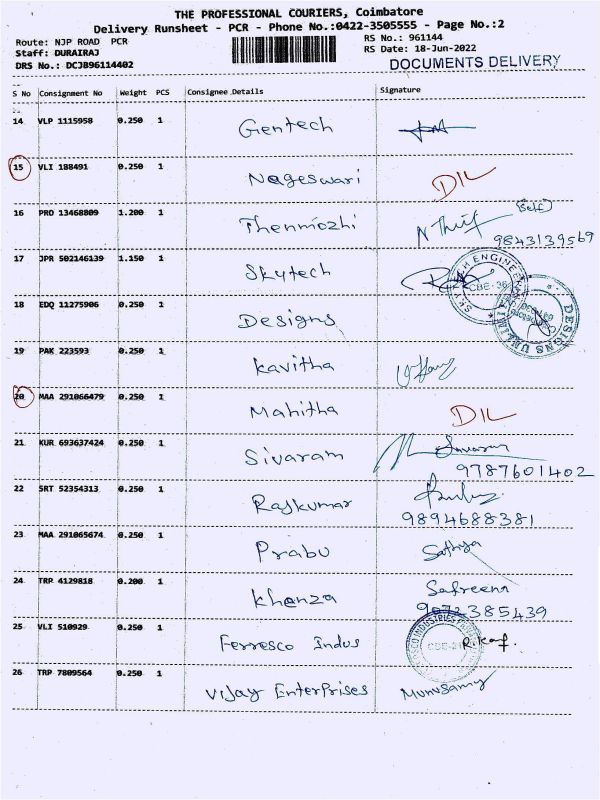 THE PROFESSIONAL COURIERS, Coimbatore
Delivery Runsheet - PCR - Phone No.:0422-3505555 - Page No.:2
Route: NJP ROAD PCR
RS No.: 961144
Staff: DURAIRAJ
RS Date: 18-Jun-2022
DRS No.: DCJB96114402
DOCUMENTS DELIVERY
S No Consignment No Weight PCS Consignee Details Signature
14 VLP 1115958 0.250 1 Gentech
15 VLI 188491 0.250 1 Nageswari DIL
16 PRO 13468809 1.200 1 Thenmozhi (Self)
9843139569
17 JPR 502146139 1.150 1 Skytech
SKYTECH ENGINEER CBE-36
18 EDQ 11275906 0.250 1 Designs
DESIGNS UNLIMI Coimbatore
19 PAK 223593 0.250 1 Kavitha
20 MAA 291066479 0.250 1 Mahitha DIL
21 KUR 693637424 0.250 1 Sivaram
9787601402
22 SRT 52354313 0.250 1 Rajkumar
9894688381
23 MAA 291065674 0.250 1 Prabu Sathya
24 TRP 4129818 0.200 1 Khenza Safreena
25 VLI 510929 0.250 1 Ferresco Indus
INDUSTRIES
26 TRP 7809564 0.250 1 Vijay Enterprises Munusamy